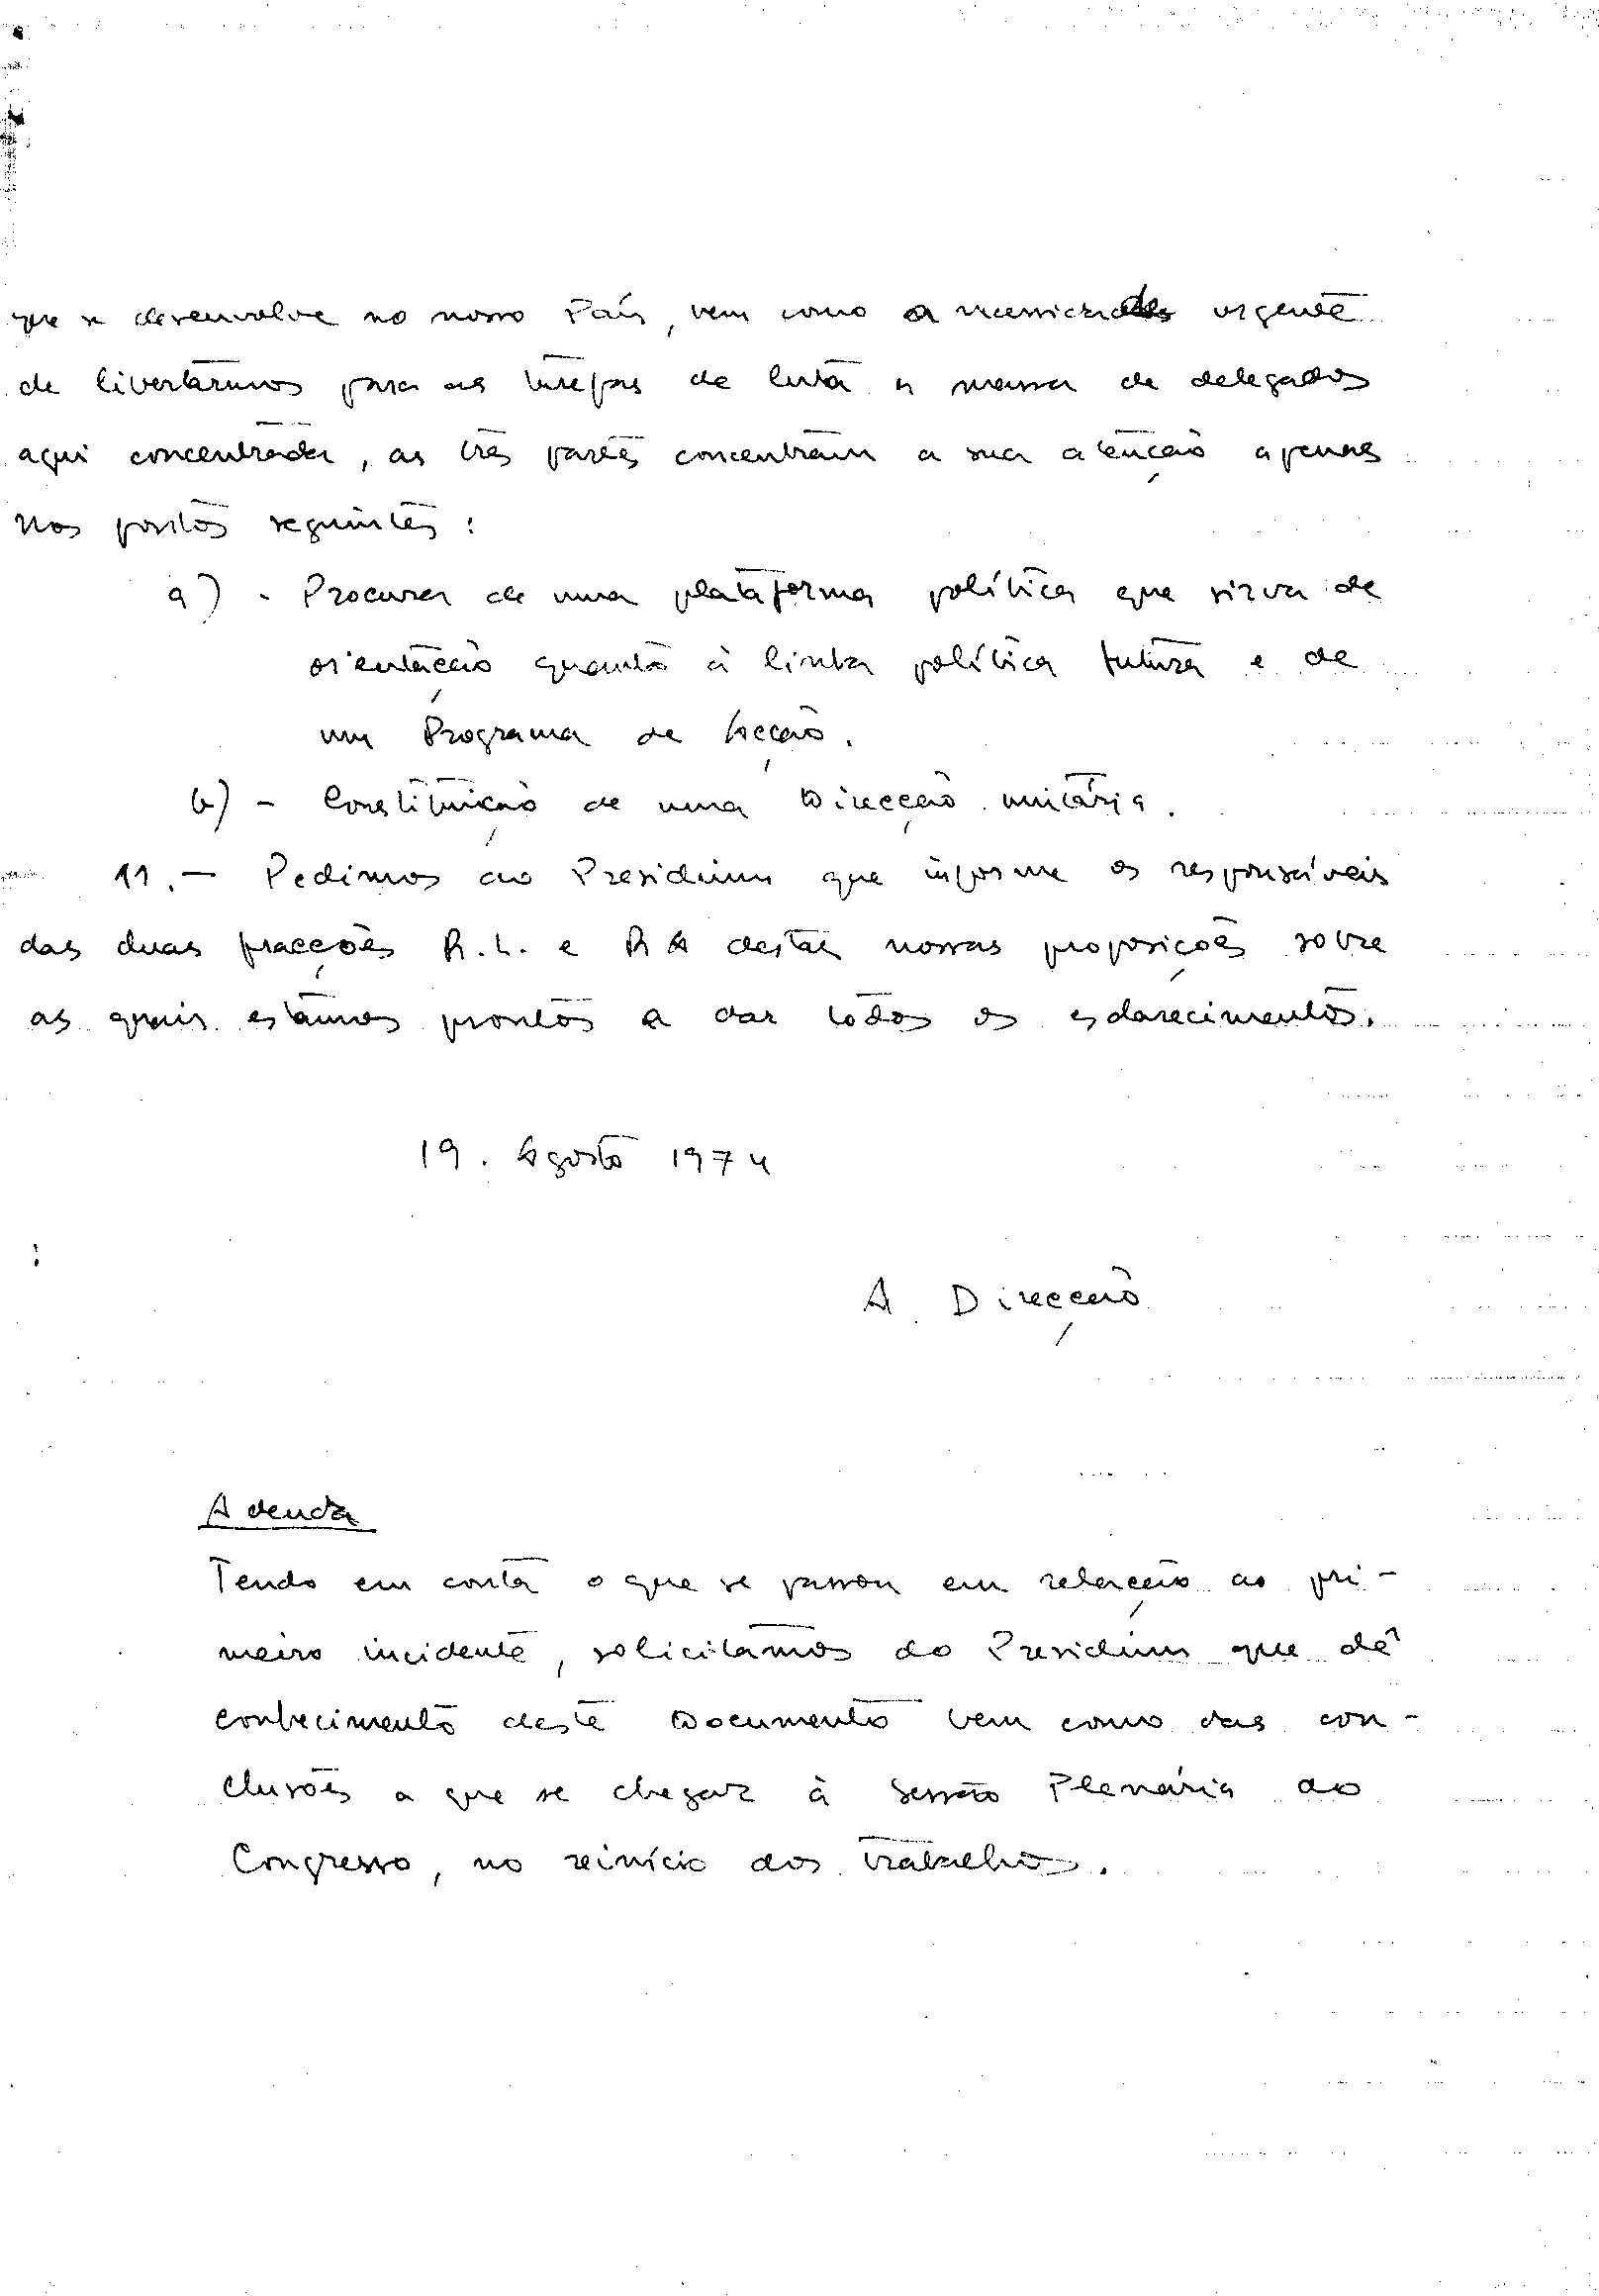 que se desenvolve no nosso País, bem como a necessidade urgente
de libertarmos para as tarefas de luta a massa de delegados
aqui concentrada, as três partes concentram a sua atenção apenas
nos pontos seguintes:
a) - Procura de uma plataforma política que sirva de
orientação quanto à linha política futura e de
um Programa de Acção.
b) - Constituição de uma Direcção unitária.
11. - Pedimos ao Presidium que informe os responsáveis
das duas fracções R.L. e RA destas nossas proposições sobre
as quais estamos prontos a dar todos os esclarecimentos.
19. Agosto 1974
A Direcção
Adenda
Tendo em conta o que se passou em relação ao pri-
meiro incidente, solicitamos do Presidium que dê
conhecimento deste Documento bem como das con-
clusões a que se chegar à Sessão Plenária do
Congresso, no reinício dos trabalhos.